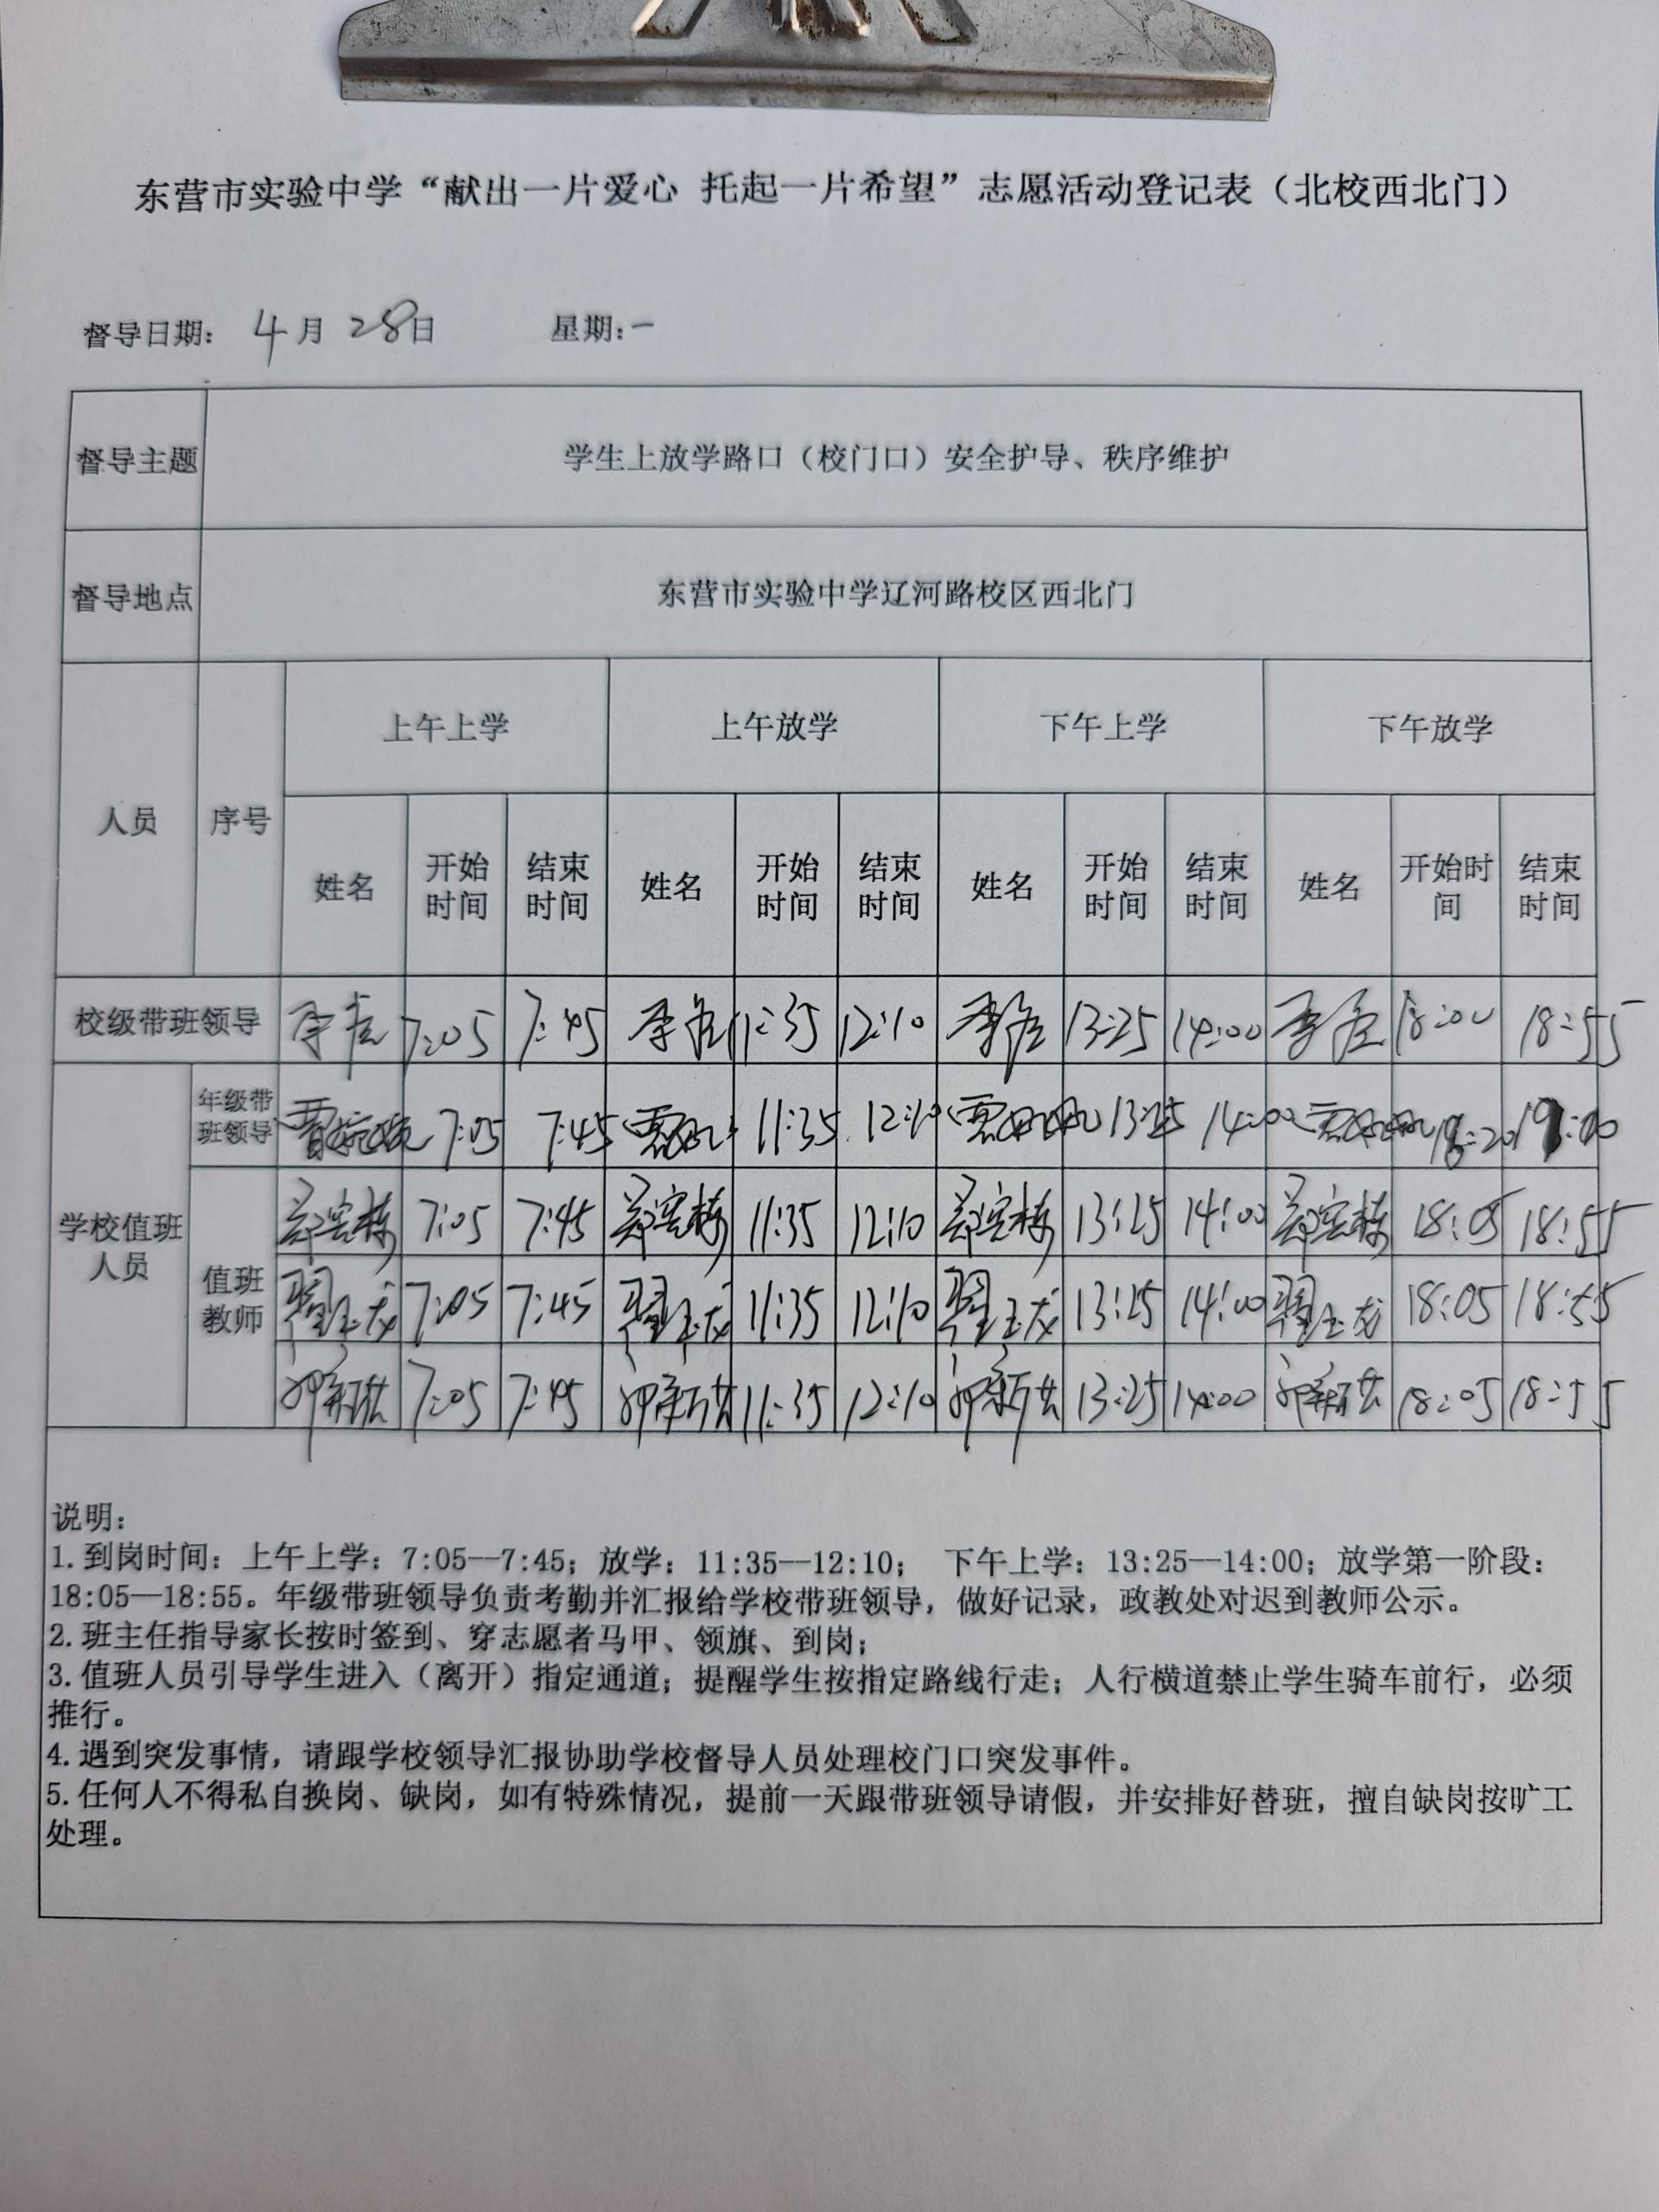 东营市实验中学“献出一片爱心 托起一片希望”志愿活动登记表（北校西北门）
督导日期： 4月 28日 星期：一
督导主题 学生上放学路口（校门口）安全护导、秩序维护
督导地点 东营市实验中学辽河路校区西北门
人员 序号 上午上学 上午放学 下午上学 下午放学
姓名 开始时间 结束时间 姓名 开始时间 结束时间 姓名 开始时间 结束时间 姓名 开始时间 结束时间
校级带班领导 7:05 7:45 11:35 12:10 13:25 14:00 18:00 18:55
学校值班人员
年级带班领导 7:05 7:45 11:35 12:10 13:25 14:00 18:20 19:00
值班教师
郑宏栋 7:05 7:45 郑宏栋 11:35 12:10 郑宏栋 13:25 14:00 郑宏栋 18:05 18:55
翟玉龙 7:05 7:45 翟玉龙 11:35 12:10 翟玉龙 13:25 14:00 翟玉龙 18:05 18:55
7:05 7:45 11:35 12:10 13:25 14:00 18:05 18:55
说明：
1.到岗时间：上午上学：7:05—7:45；放学：11:35—12:10； 下午上学：13:25—14:00；放学第一阶段：
18:05—18:55。年级带班领导负责考勤并汇报给学校带班领导，做好记录，政教处对迟到教师公示。
2.班主任指导家长按时签到、穿志愿者马甲、领旗、到岗；
3.值班人员引导学生进入（离开）指定通道；提醒学生按指定路线行走；人行横道禁止学生骑车前行，必须
推行。
4.遇到突发事情，请跟学校领导汇报协助学校督导人员处理校门口突发事件。
5.任何人不得私自换岗、缺岗，如有特殊情况，提前一天跟带班领导请假，并安排好替班，擅自缺岗按旷工
处理。